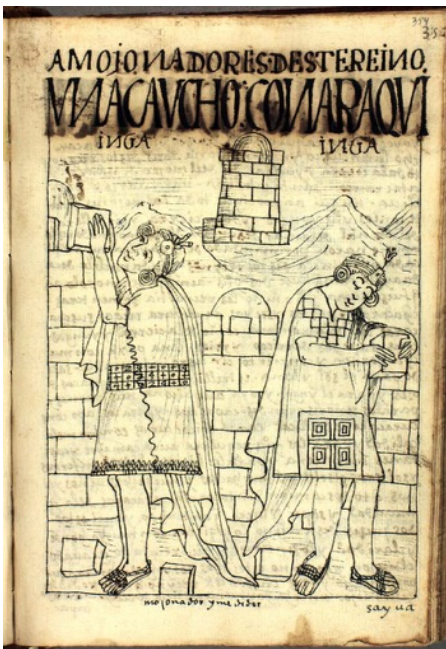 354
AMOJONADORES·DESTEREINO
VNACAVCHO:CONARAQVI
INGA INGA
mojonador y medidor
sayua